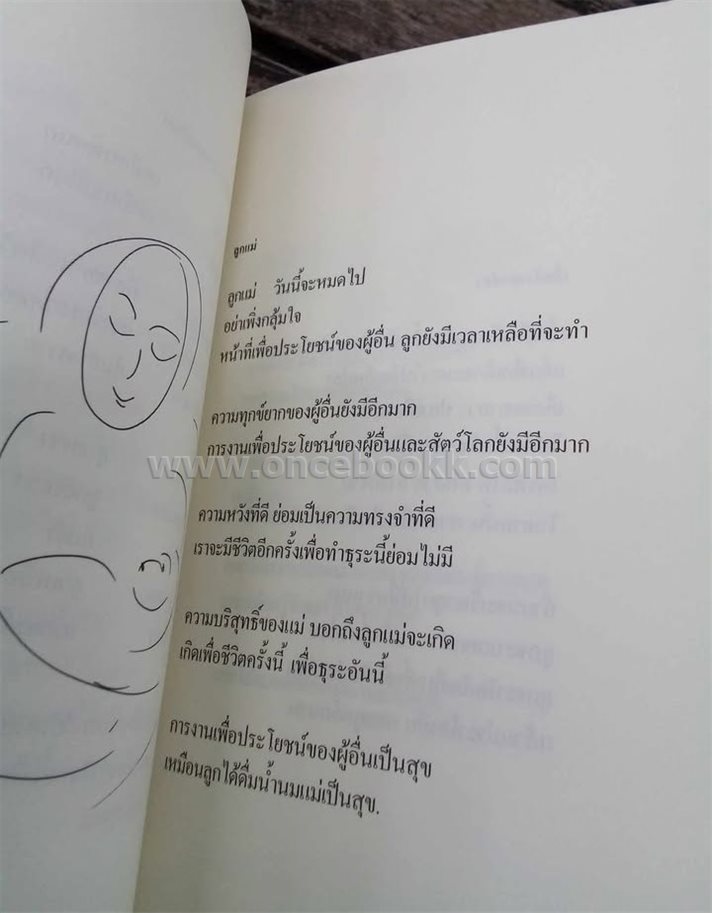 ลูกแม่
ลูกแม่ วันนี้จะหมดไป
อย่าเพิ่งกลุ้มใจ
หน้าที่เพื่อประโยชน์ของผู้อื่น ลูกยังมีเวลาเหลือที่จะทำ
ความทุกข์ยากของผู้อื่นยังมีอีกมาก
การงานเพื่อประโยชน์ของผู้อื่นและสัตว์โลกยังมีอีกมาก
www.oncebookk.com
ความหวังที่ดี ย่อมเป็นความทรงจำที่ดี
เราจะมีชีวิตอีกครั้งเพื่อทำธุระนี้ย่อมไม่มี
ความบริสุทธิ์ของแม่ บอกถึงลูกแม่จะเกิด
เกิดเพื่อชีวิตครั้งนี้ เพื่อธุระอันนี้
การงานเพื่อประโยชน์ของผู้อื่นเป็นสุข
เหมือนลูกได้ดื่มน้ำนมแม่เป็นสุข.